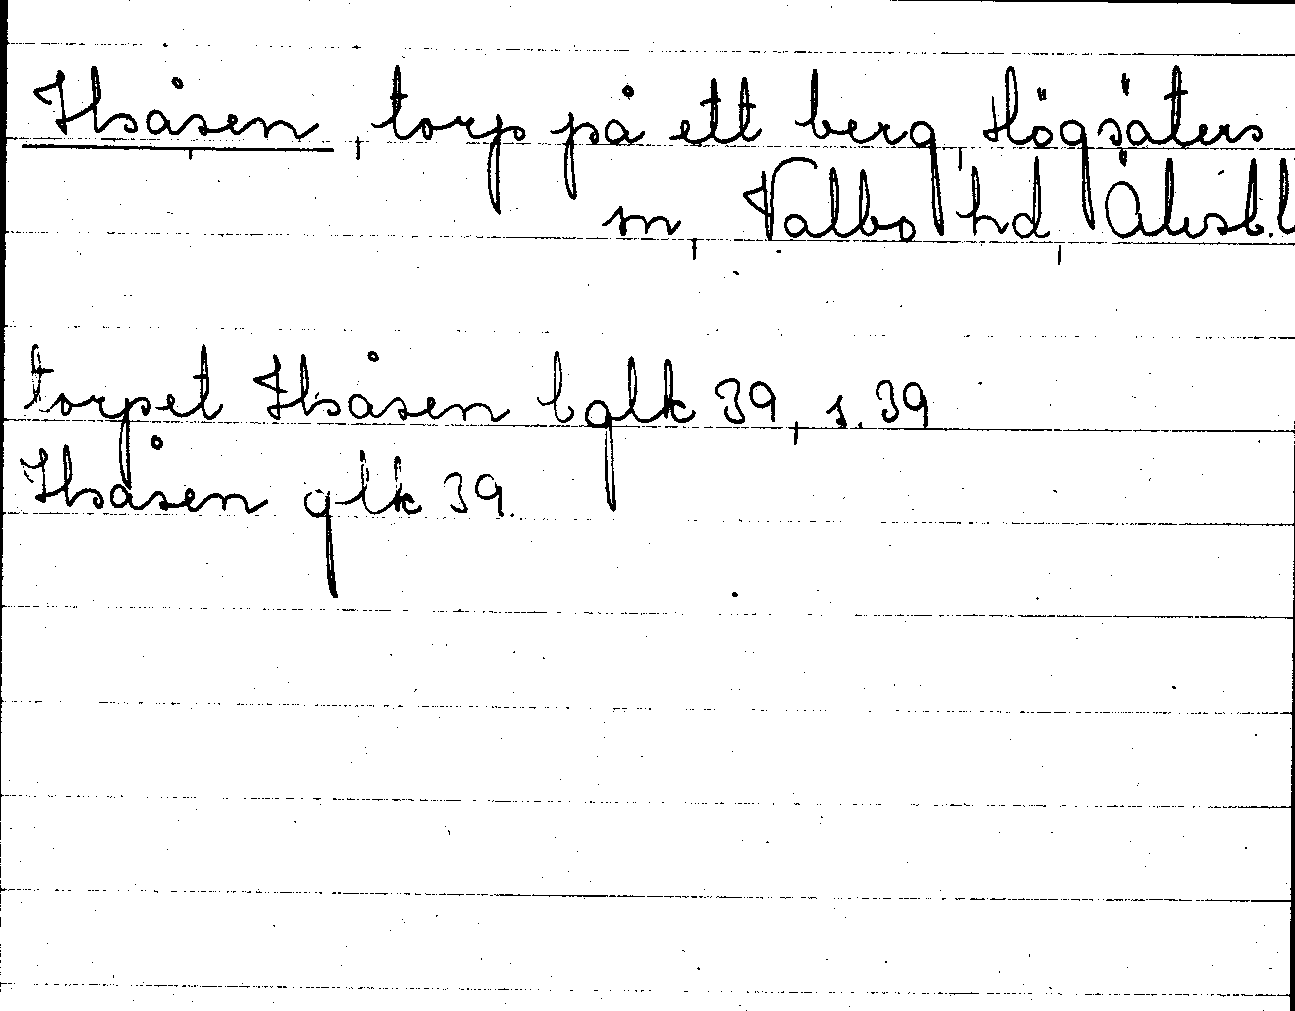 Ilsåsen, torp på ett berg, Högsäters
sn, Valbo hd, Älvsb.l
torpet Ilsåsen bglk 39, s. 39
Ilsåsen glk 39.